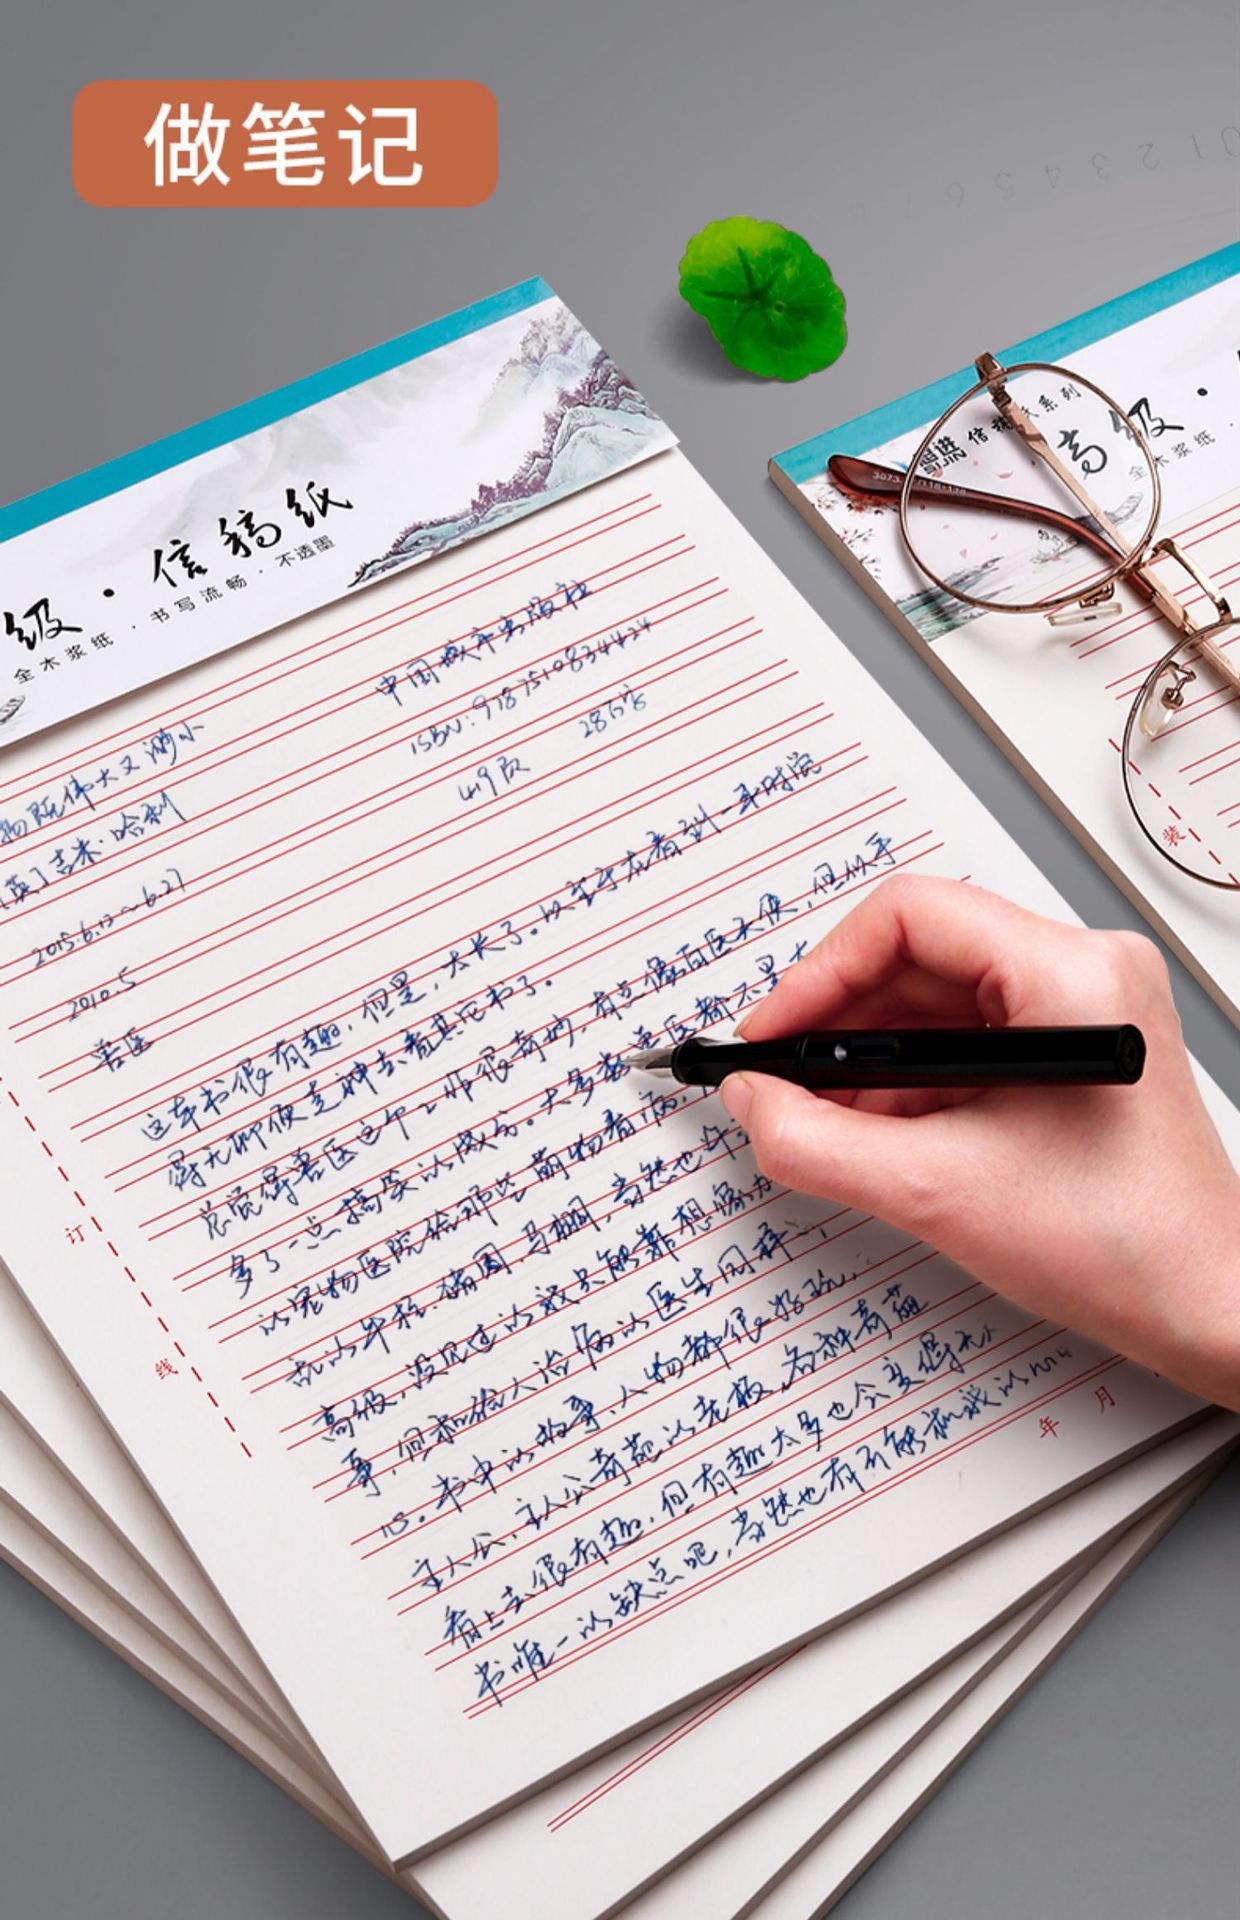 做笔记
级·信稿纸
全木浆纸·书写流畅·不透墨
信 系列
思进
SIJIN
高级·
全木浆纸·
中国城市出版社
物既伟大又渺小
ISBN:9787510834424
[英]吉米·哈利
419页
2015.6.12~6.27
2010.5
兽医
这本书很有趣,但是,太长了。以至于在看到一半时觉
得无聊便走神去看其它书了。
总觉得兽医这个工作很奇妙,有点像白医天使,但似乎
多了一点搞笑的成分。大多数兽医都不是
的宠物医院给那些萌物看病,
高级,没见过的我只能靠想像
事,但和给人治病的医生同样
书中的故事、人物都很好玩,
主人公、主人公奇葩的老板、各种奇葩
看上去很有趣,但有趣太多也会变得无
书唯一的缺点吧,当然也有可能和我的
装
订
线
年 月